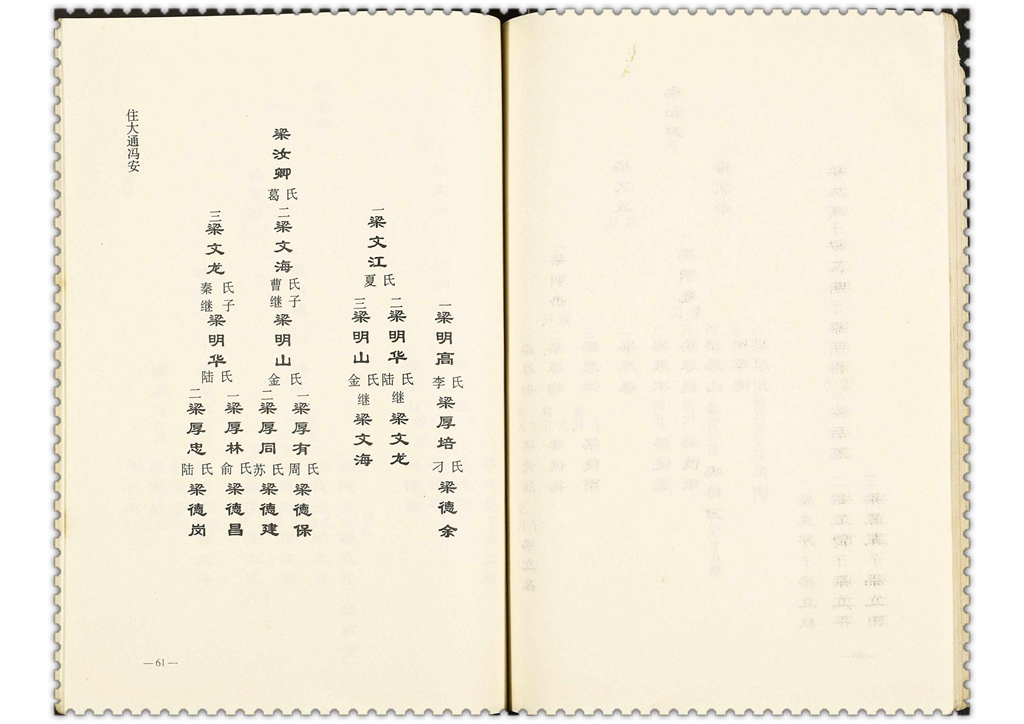 一梁明高李氏梁厚培刁氏梁德余
二梁明华陆氏继梁文龙
一梁文江夏氏
三梁明山金氏继梁文海
一梁厚有周氏梁德保
梁汝卿葛氏二梁文海曹氏继子梁明山金氏
二梁厚同苏氏梁德建
一梁厚林俞氏梁德昌
三梁文龙秦氏继子梁明华陆氏
二梁厚忠陆氏梁德岗
住大通冯安
—61—